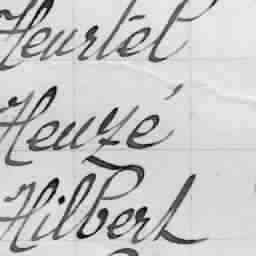 Heurtel
Heuzé
Hilbert